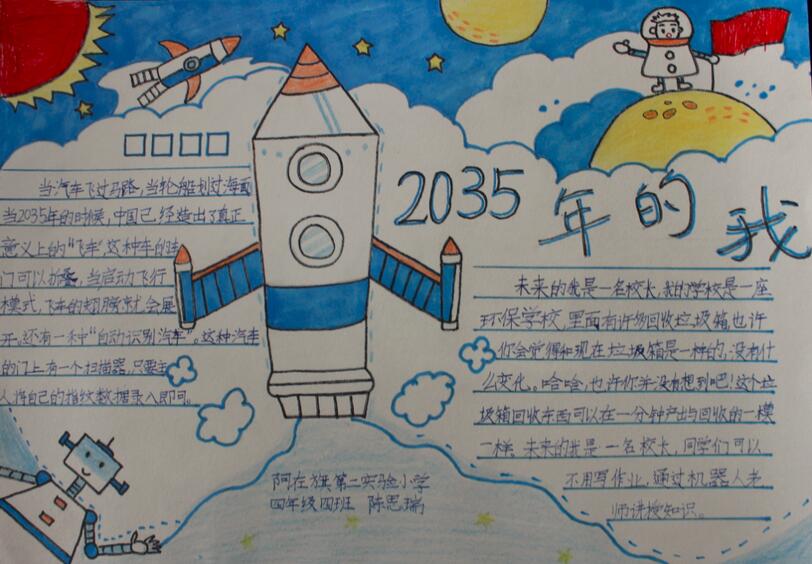 2035年的我
当汽车飞过马路,当轮船划过海面
当2035年的时候,中国已经造出了真正
意义上的"飞车"这种车的
门可以折叠,当启动飞行
模式,飞车的翅膀就会展
开。还有一种"自动识别汽车"。这种汽车
的门上有一个扫描器,只要主
人将自己的指纹数据录入即可。
未来的我是一名校长,我的学校是一座
环保学校,里面有许多回收垃圾箱,也许
你会觉得和现在垃圾箱是一样的,没有什
么变化。哈哈,也许你并没有想到吧!这个垃
圾箱回收东西可以在一分钟产出与回收的一模
一样,未来的我是一名校长,同学们可以
不用写作业,通过机器人老
师讲授知识。
阿左旗第二实验小学
四年级四班 陈思瑞